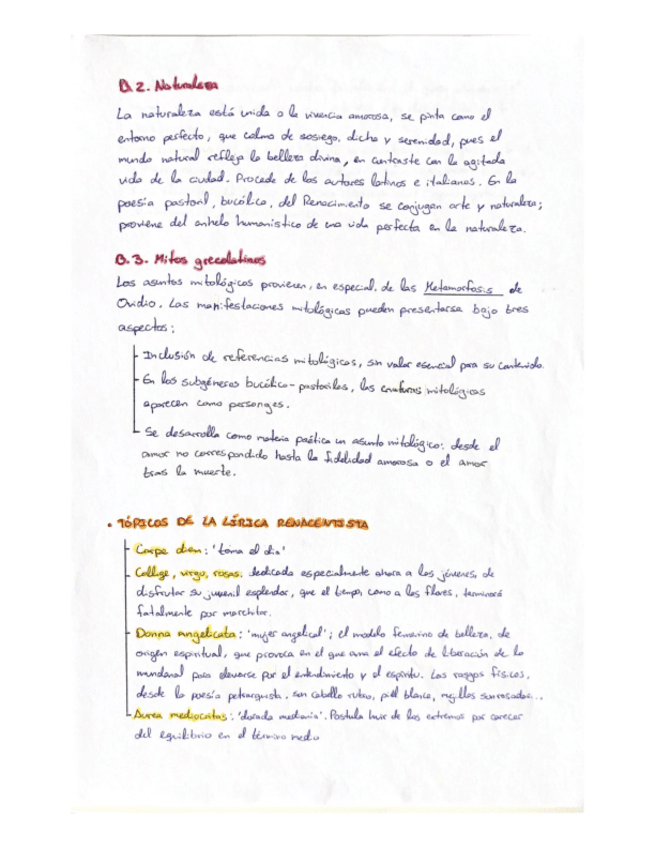 B.2. Naturaleza
La naturaleza está unida a la vivencia amorosa, se pinta como el
entorno perfecto, que colma de sosiego, dicha y serenidad, pues el
mundo natural refleja la belleza divina, en contraste con la agitada
vida de la ciudad. Procede de los autores latinos e italianos. En la
poesía pastoril, bucólica, del Renacimiento se conjugan arte y naturaleza;
proviene del anhelo humanístico de una vida perfecta en la naturaleza.
B.3. Mitos grecolatinos
Los asuntos mitológicos provienen, en especial, de las Metamorfosis de
Ovidio. Las manifestaciones mitológicas pueden presentarse bajo tres
aspectos:
Inclusión de referencias mitológicas, sin valor esencial para su contenido.
En los subgéneros bucólico-pastoriles, las criaturas mitológicas
aparecen como personajes.
Se desarrolla como materia poética un asunto mitológico: desde el
amor no correspondido hasta la fidelidad amorosa o el amor
tras la muerte.
• TÓPICOS DE LA LÍRICA RENACENTISTA
Carpe diem: 'toma el día'
Collige, virgo, rosas: dedicada especialmente ahora a los jóvenes, de
disfrutar su juvenil esplendor, que el tiempo, como a las flores, terminará
fatalmente por marchitar.
Donna angelicata: 'mujer angelical'; el modelo femenino de belleza, de
origen espiritual, que provoca en el que ama el efecto de liberación de lo
mundanal para elevarse por el entendimiento y el espíritu. Los rasgos físicos,
desde la poesía petrarquista, son cabello rubio, piel blanca, mejillas sonrosadas...
Aurea mediocritas: 'dorada medianía'. Postula huir de los extremos por carecer
del equilibrio en el término medio